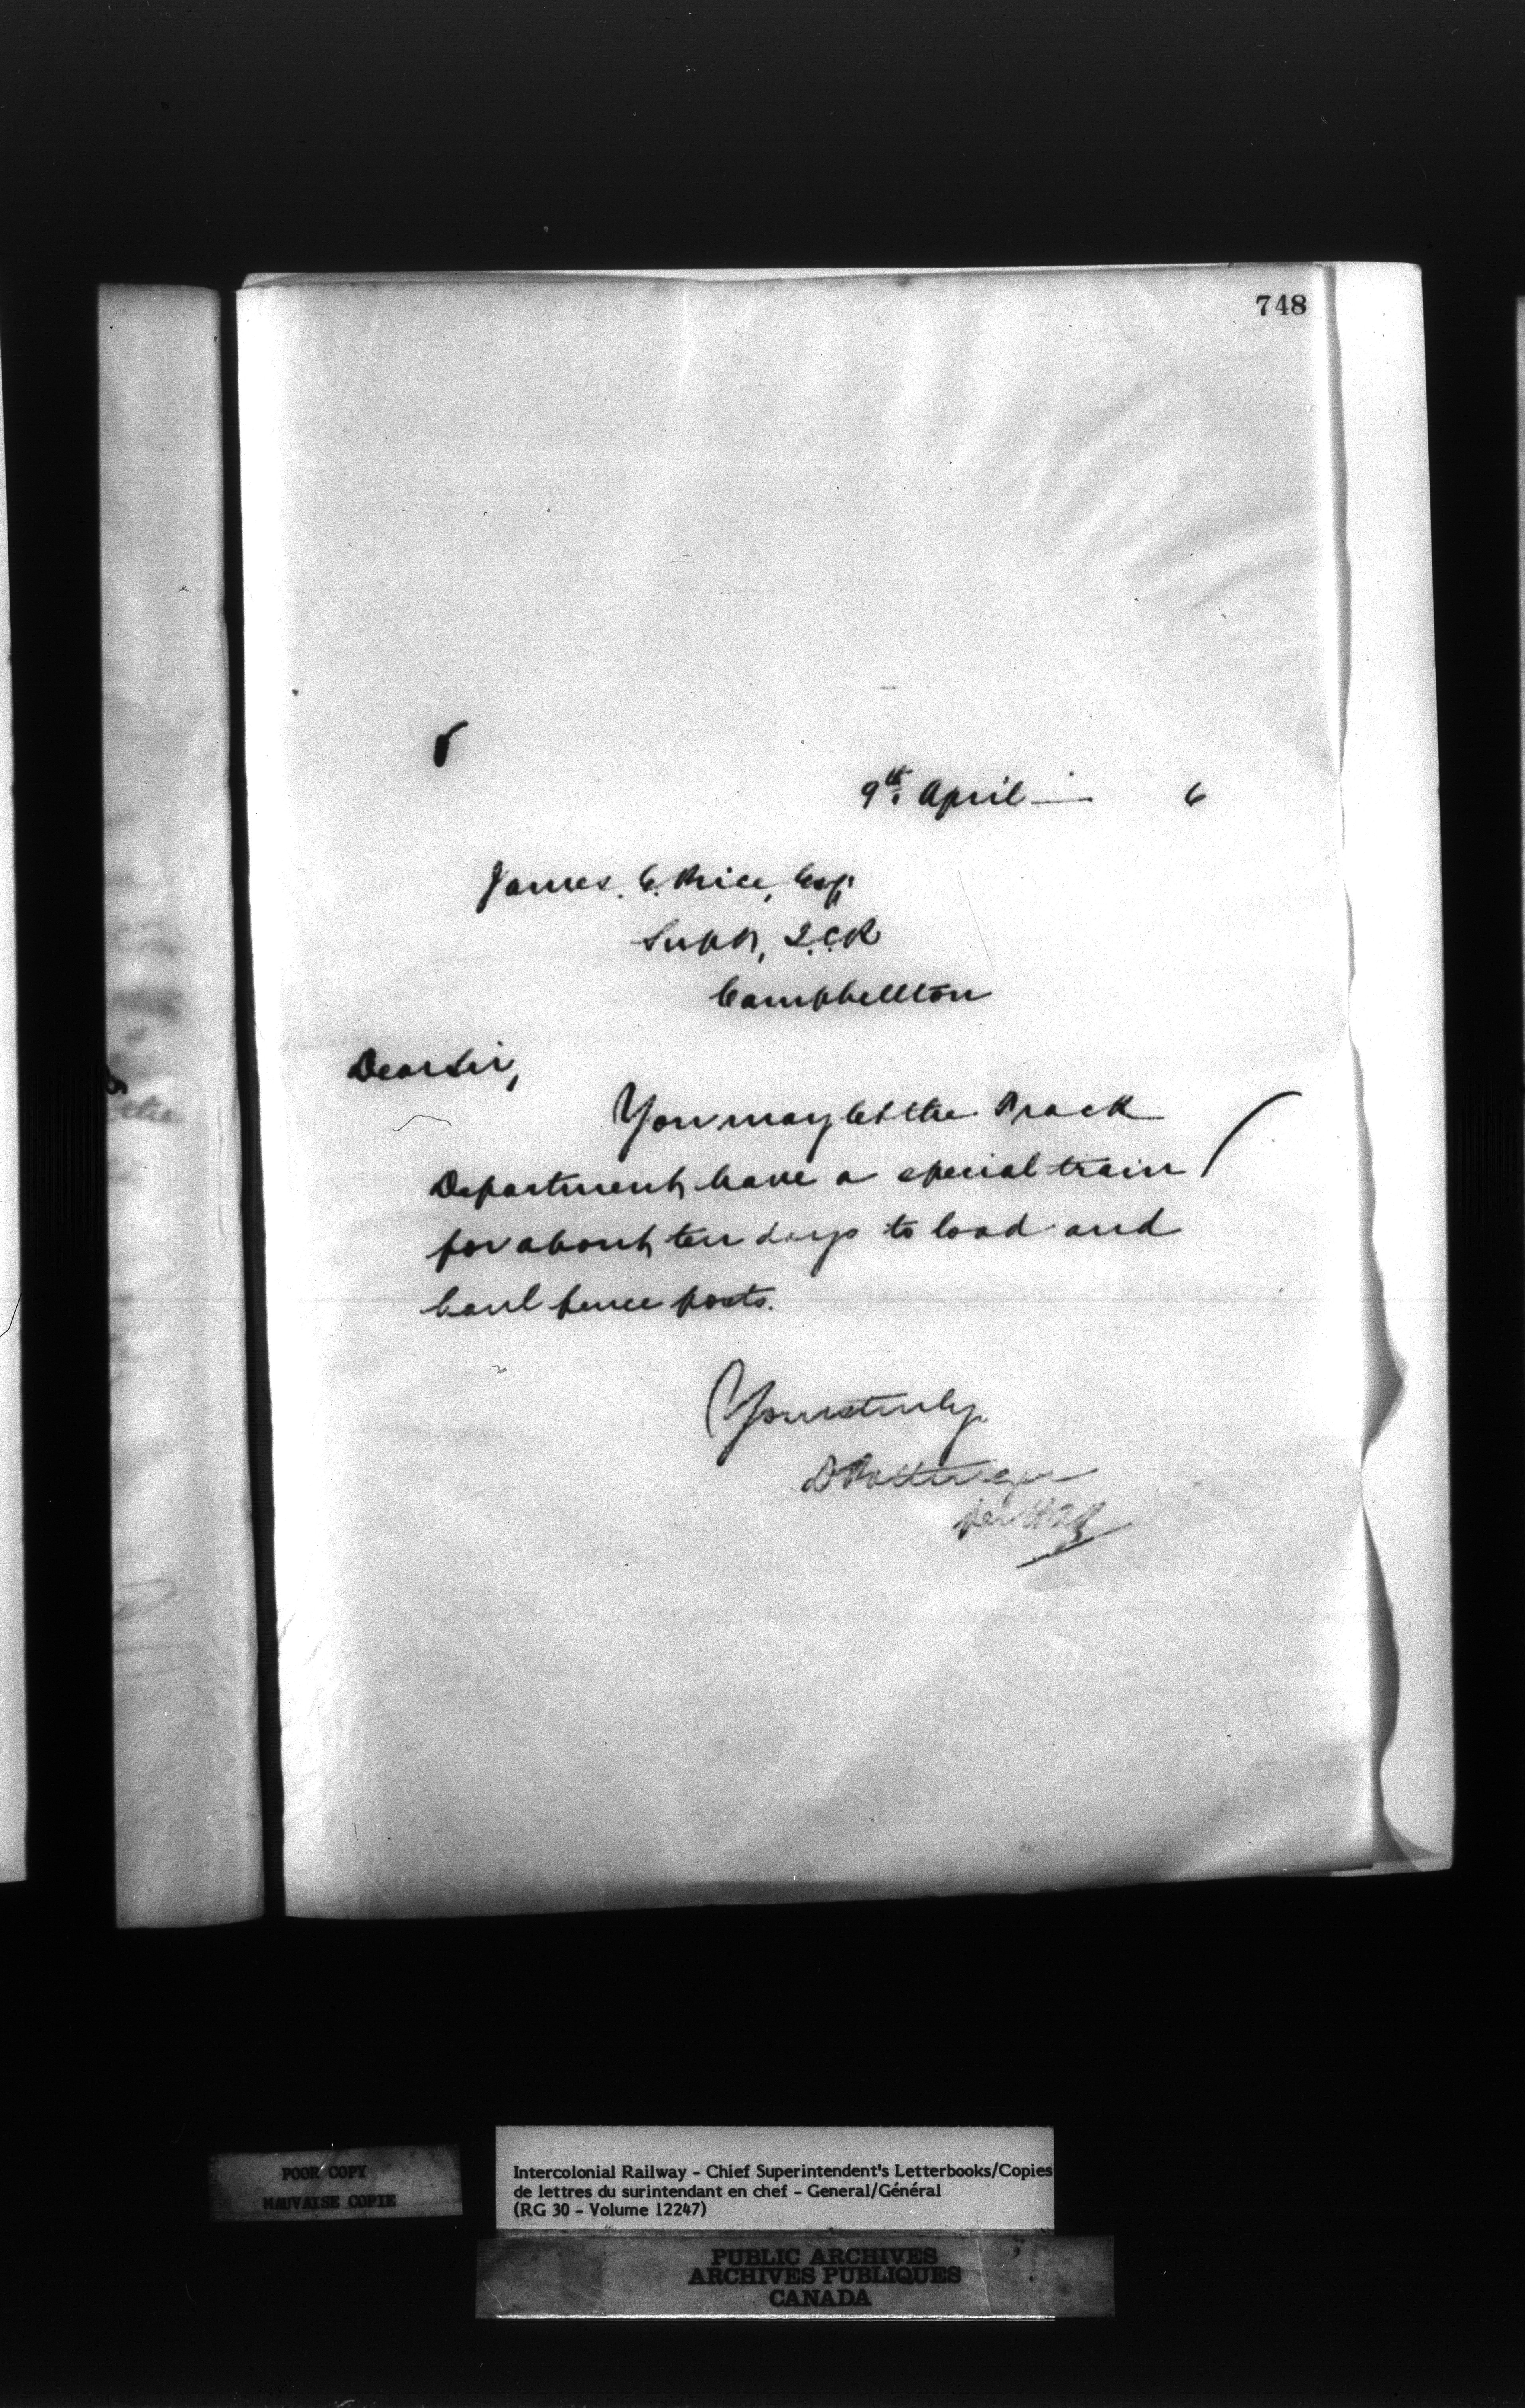 748
9th. April — 6
James. E. Price, Esq.
Supt, I.C.R
Campbellton
Dear Sir,
You may let the Track
Department have a special train
for about ten days to load and
haul fence posts.
Yours truly
D Pottinger
per
POOR COPY
MAUVAISE COPIE
Intercolonial Railway - Chief Superintendent's Letterbooks/Copies
de lettres du surintendant en chef - General/Général
(RG 30 - Volume 12247)
PUBLIC ARCHIVES
ARCHIVES PUBLIQUES
CANADA